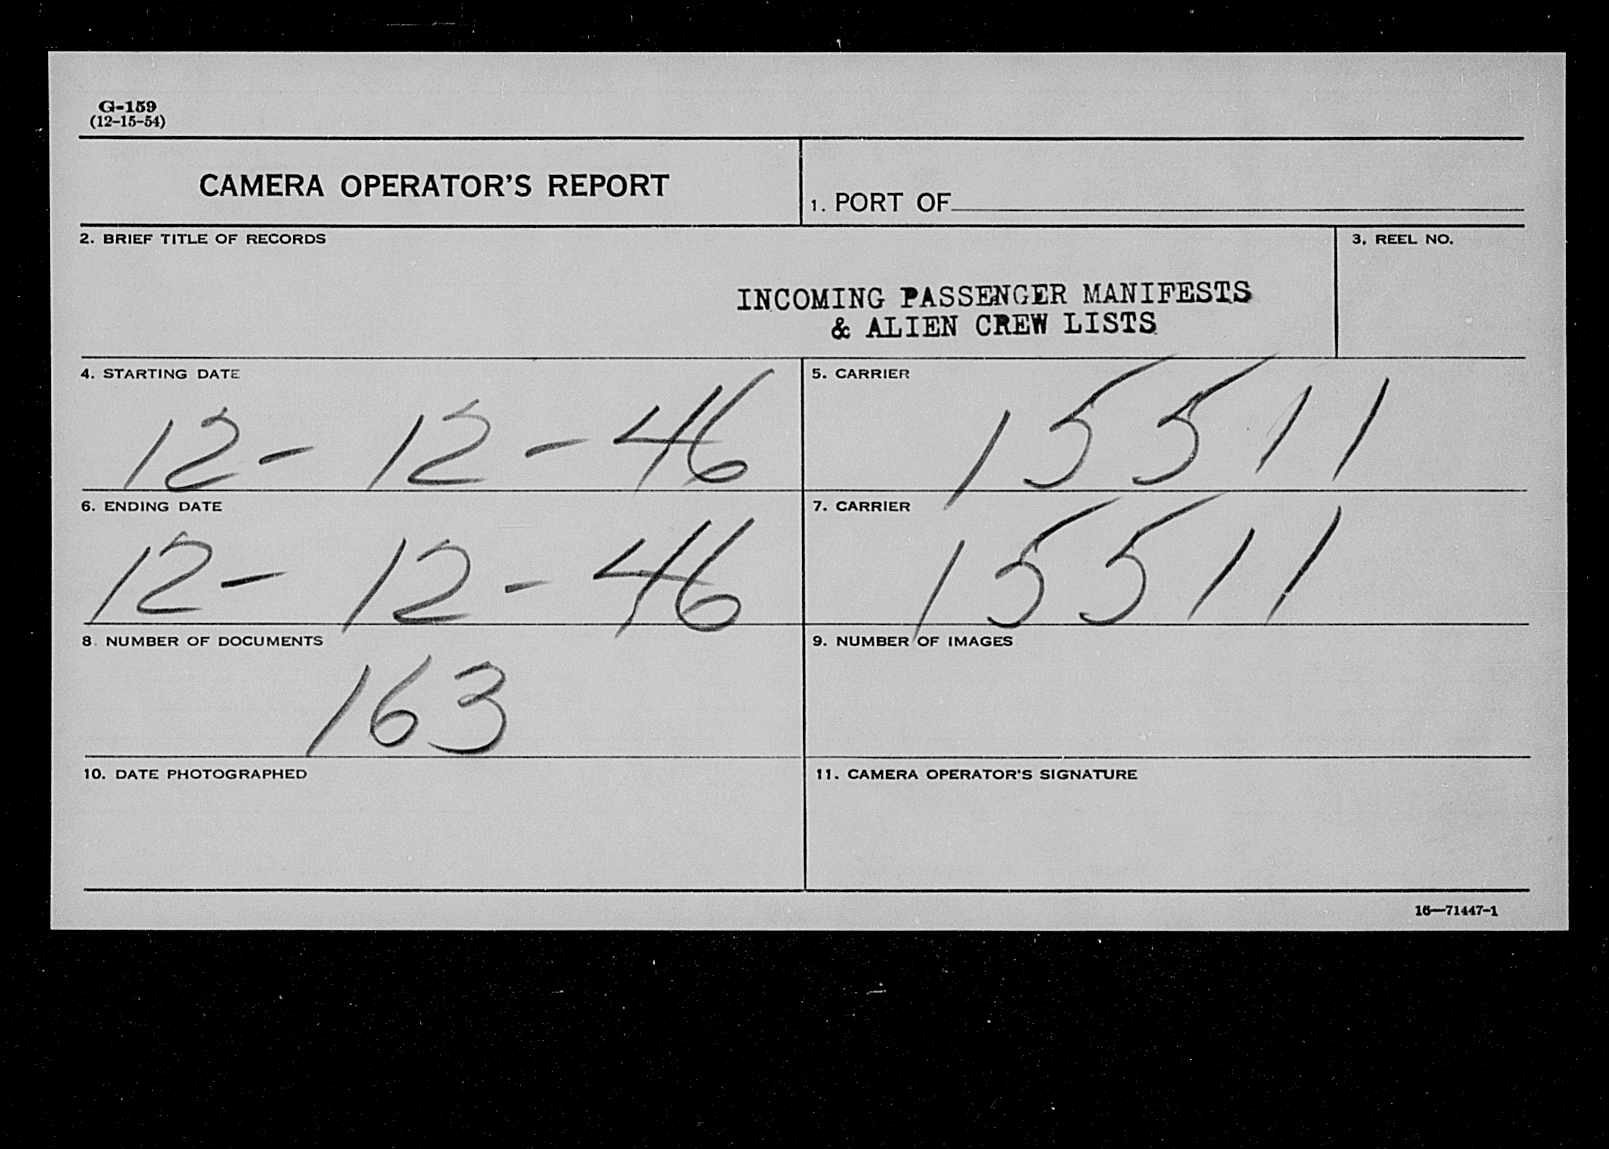 G-159
(12-15-54)
CAMERA OPERATOR'S REPORT
1. PORT OF
2. BRIEF TITLE OF RECORDS
3. REEL NO.
INCOMING PASSENGER MANIFESTS
& ALIEN CREW LISTS
4. STARTING DATE
12-12-46
5. CARRIER
15511
6. ENDING DATE
12-12-46
7. CARRIER
15511
8. NUMBER OF DOCUMENTS
163
9. NUMBER OF IMAGES
10. DATE PHOTOGRAPHED
11. CAMERA OPERATOR'S SIGNATURE
16—71447-1